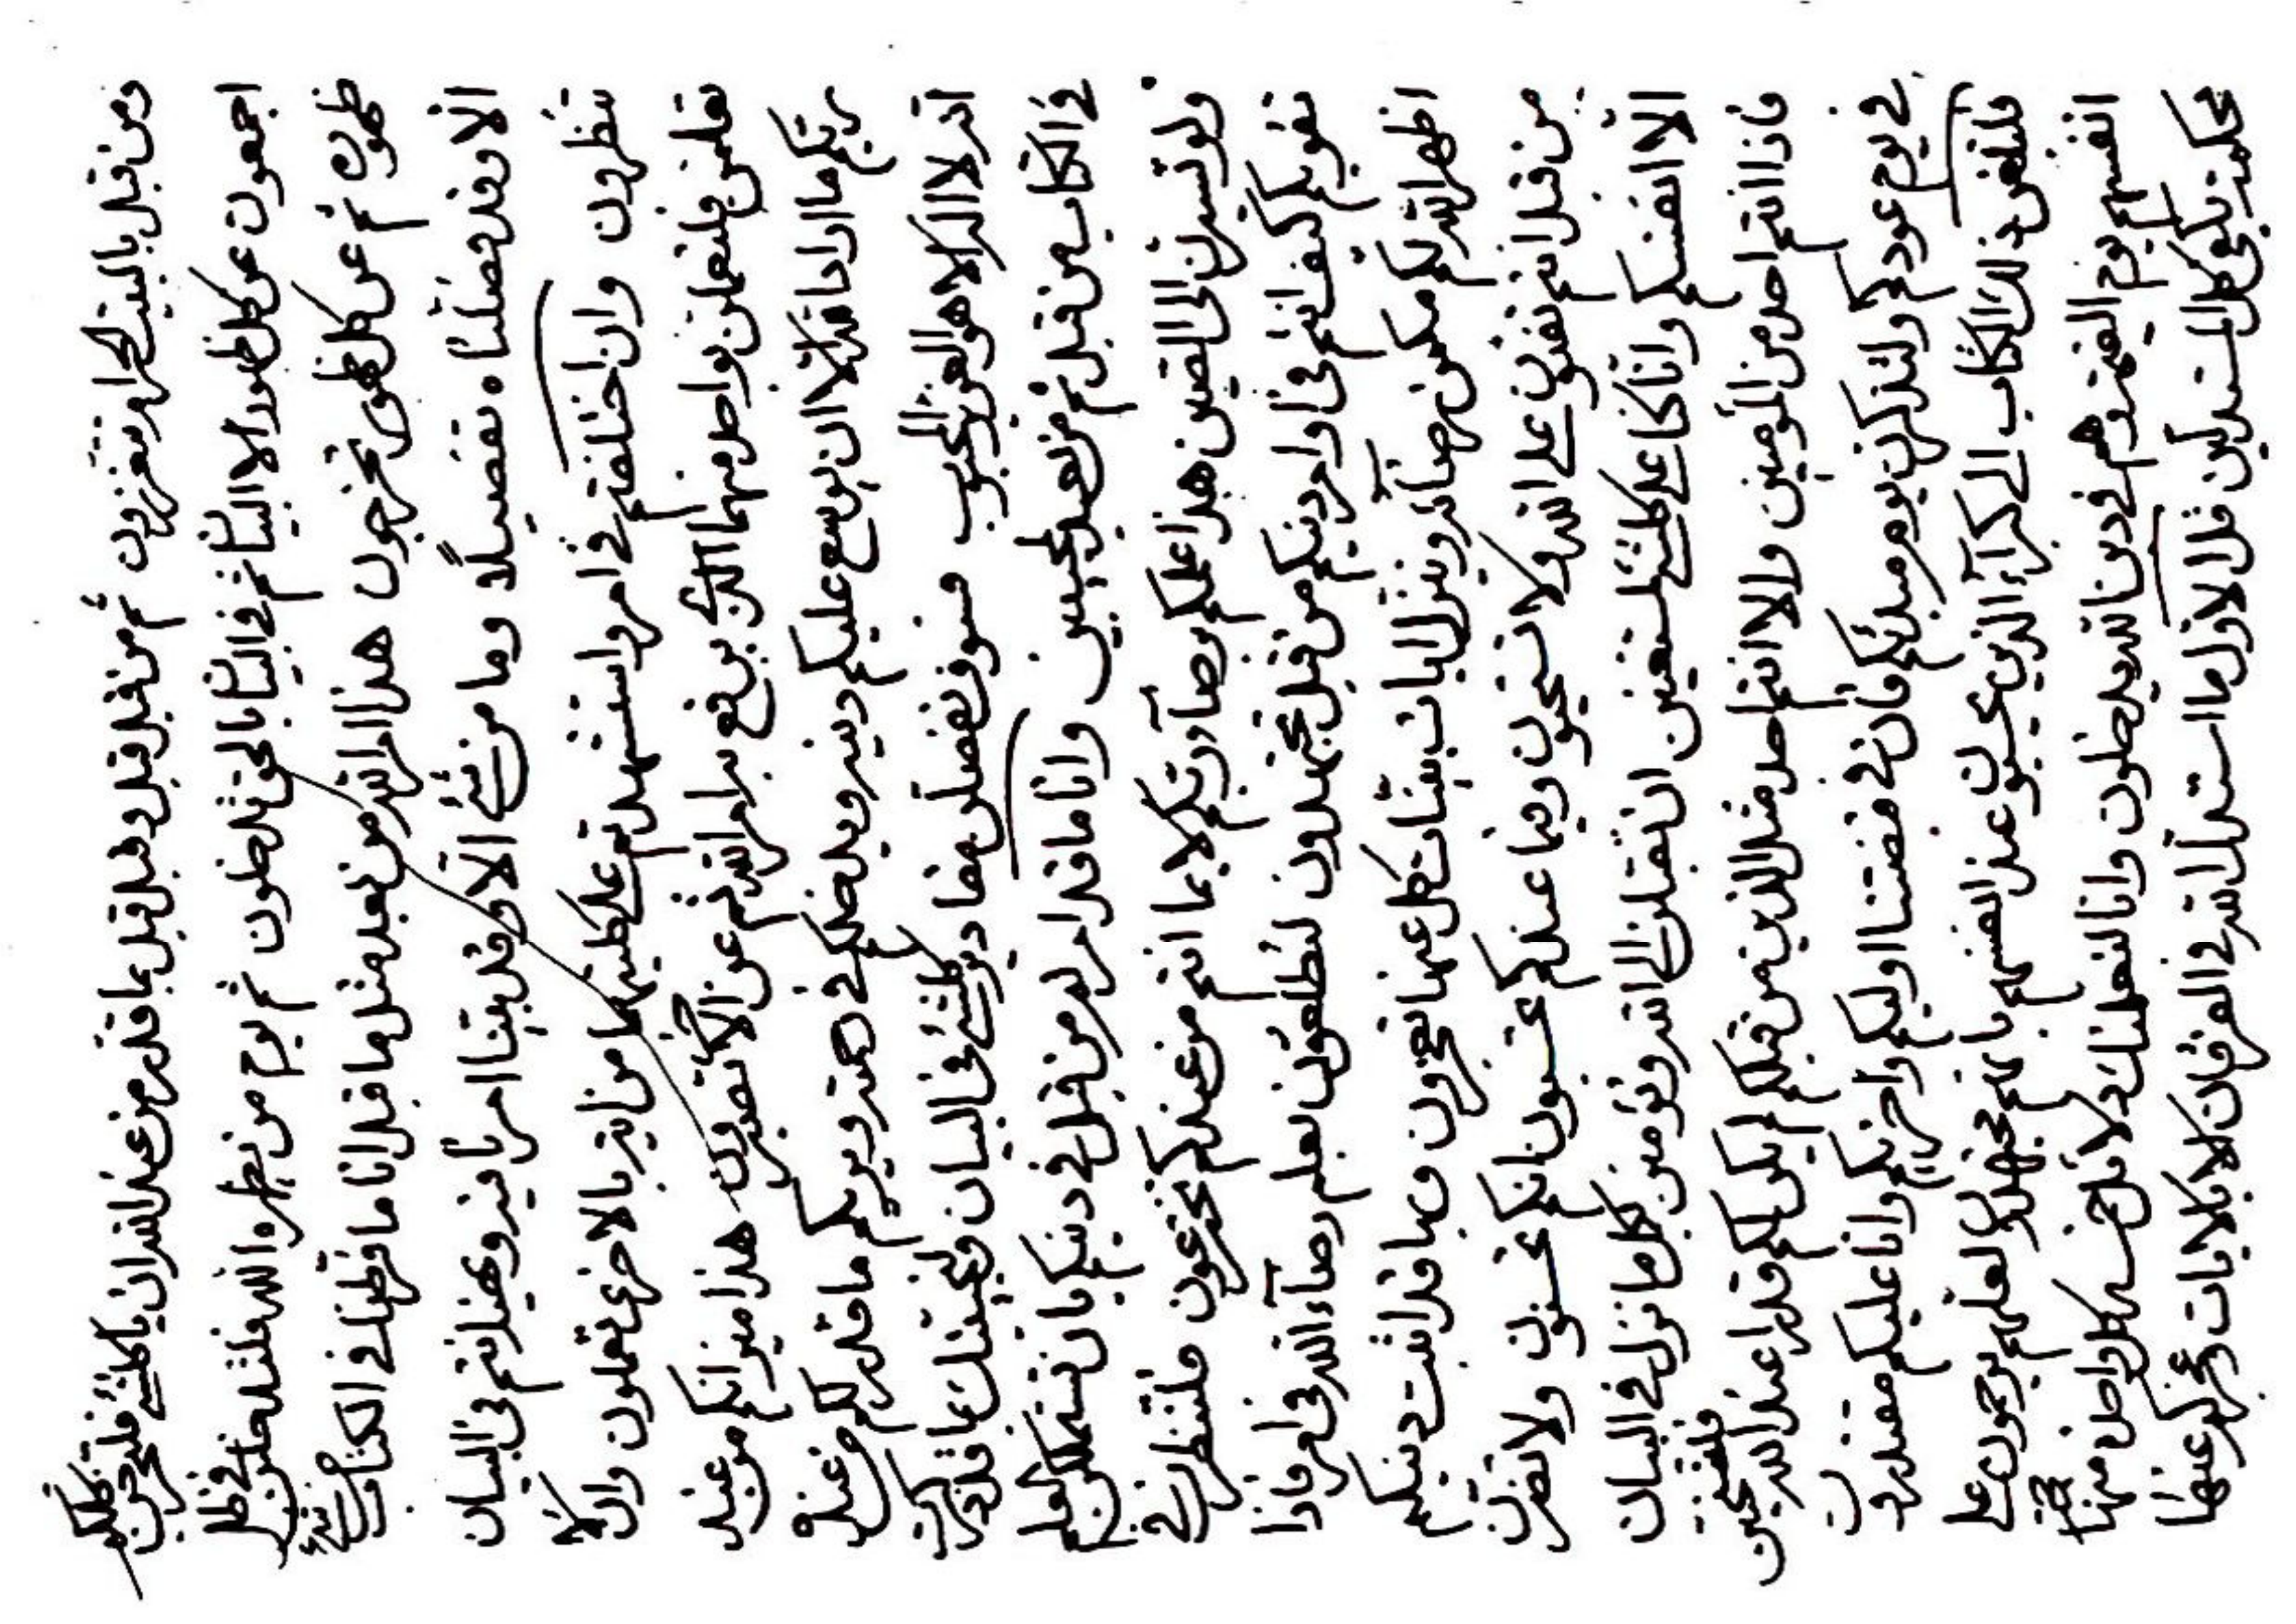 ومن قبل بالبيت الحرام تعززون ثم من قبل قبل وقبل قبل بما قدر من عند الله ان يا كلشئ فلترحمن
اجمعون عن كل ظهور الا البيان ثم في البيان بالحق تدخلون ثم يوم من يظهره الله فلتدخلن في ظل
ظهوره ثم عن كل ظهور تخرجون هذا امر الله من بعد مثل ما قد انا ما فرطنا في الكتاب من شئ
الا وقد فصلناه تفصيلا وما من شئ الا وقد بينا امرنا فيه وبهذا انتم في البيان
تنظرون وان اختلفتم في امر واستشهدتم على كلمتهما من اية بالاخرى تعملون وان
تعلمن فلتعملن بواحد منهما الذي يرفع به امر الله ثم عن الاخر تصبرون هذا ميزانكم من عند
ربكم ما اراد اقد الا ان يوسع عليكم دينه ويدخلكم في جنته ويربيكم ما قدر لكم من عنده
انه لا اله الا هو العزيز المحبوب فسوف نفصلن مقادير كلشئ في البيان ولنجيبنك عما قد
في الكتاب من قبل ثم من بعد لمجيبين وانا ما قد امر به من قبل في دينكم بان تستمسكن لعلم
ولو تسترن الى الصين هذا علمكم برضاء ربكم لا بما انتم من عندكم تخترعون فلتنظرن في
نفوسكم كيف انتم في اوامر دينكم من قبل تجتهدون لتطلعون بعلم رضاء الله في امر فاذا
اظهر الله لكم مكمن رضائه وينزل ايات بينات كل عنها تعجزون وبها قد اثبت دينكم
من قبل انتم تفترون على الله ولا تستحيون وبما عندكم تحتسبون انكم محسنون ولا تضرن
الا انفسكم وانا كنا على كلشئ لمستغنين ان تقبلن الى الله وتؤمنن بكل ما نزل في البيان
فاذا انتم احد من المؤمنين والا انتم احد مثل الذين من قبلكم لم يكن لكم قدرا عند الله فلتستحين
في يوم عودكم ولتذكرن يوم مبدئكم فان في قبضتنا اوليكم واخريكم وانا عليكم مقتدرون
فلتلقين ذلك الكتاب الى كبراء الذين يحسبون عند انفسهم بانهم مجتهدون لعلهم يرحمون على
انفسهم يوم القيمة وهم في دين الله يدخلون وانا لنعلمنك دلائل خمسه كل واحد منها حجة
محكمة تكفي كل المستدلين قل الاول ما استدل الله في الفرقان الا بالايات وعجز كل عنها